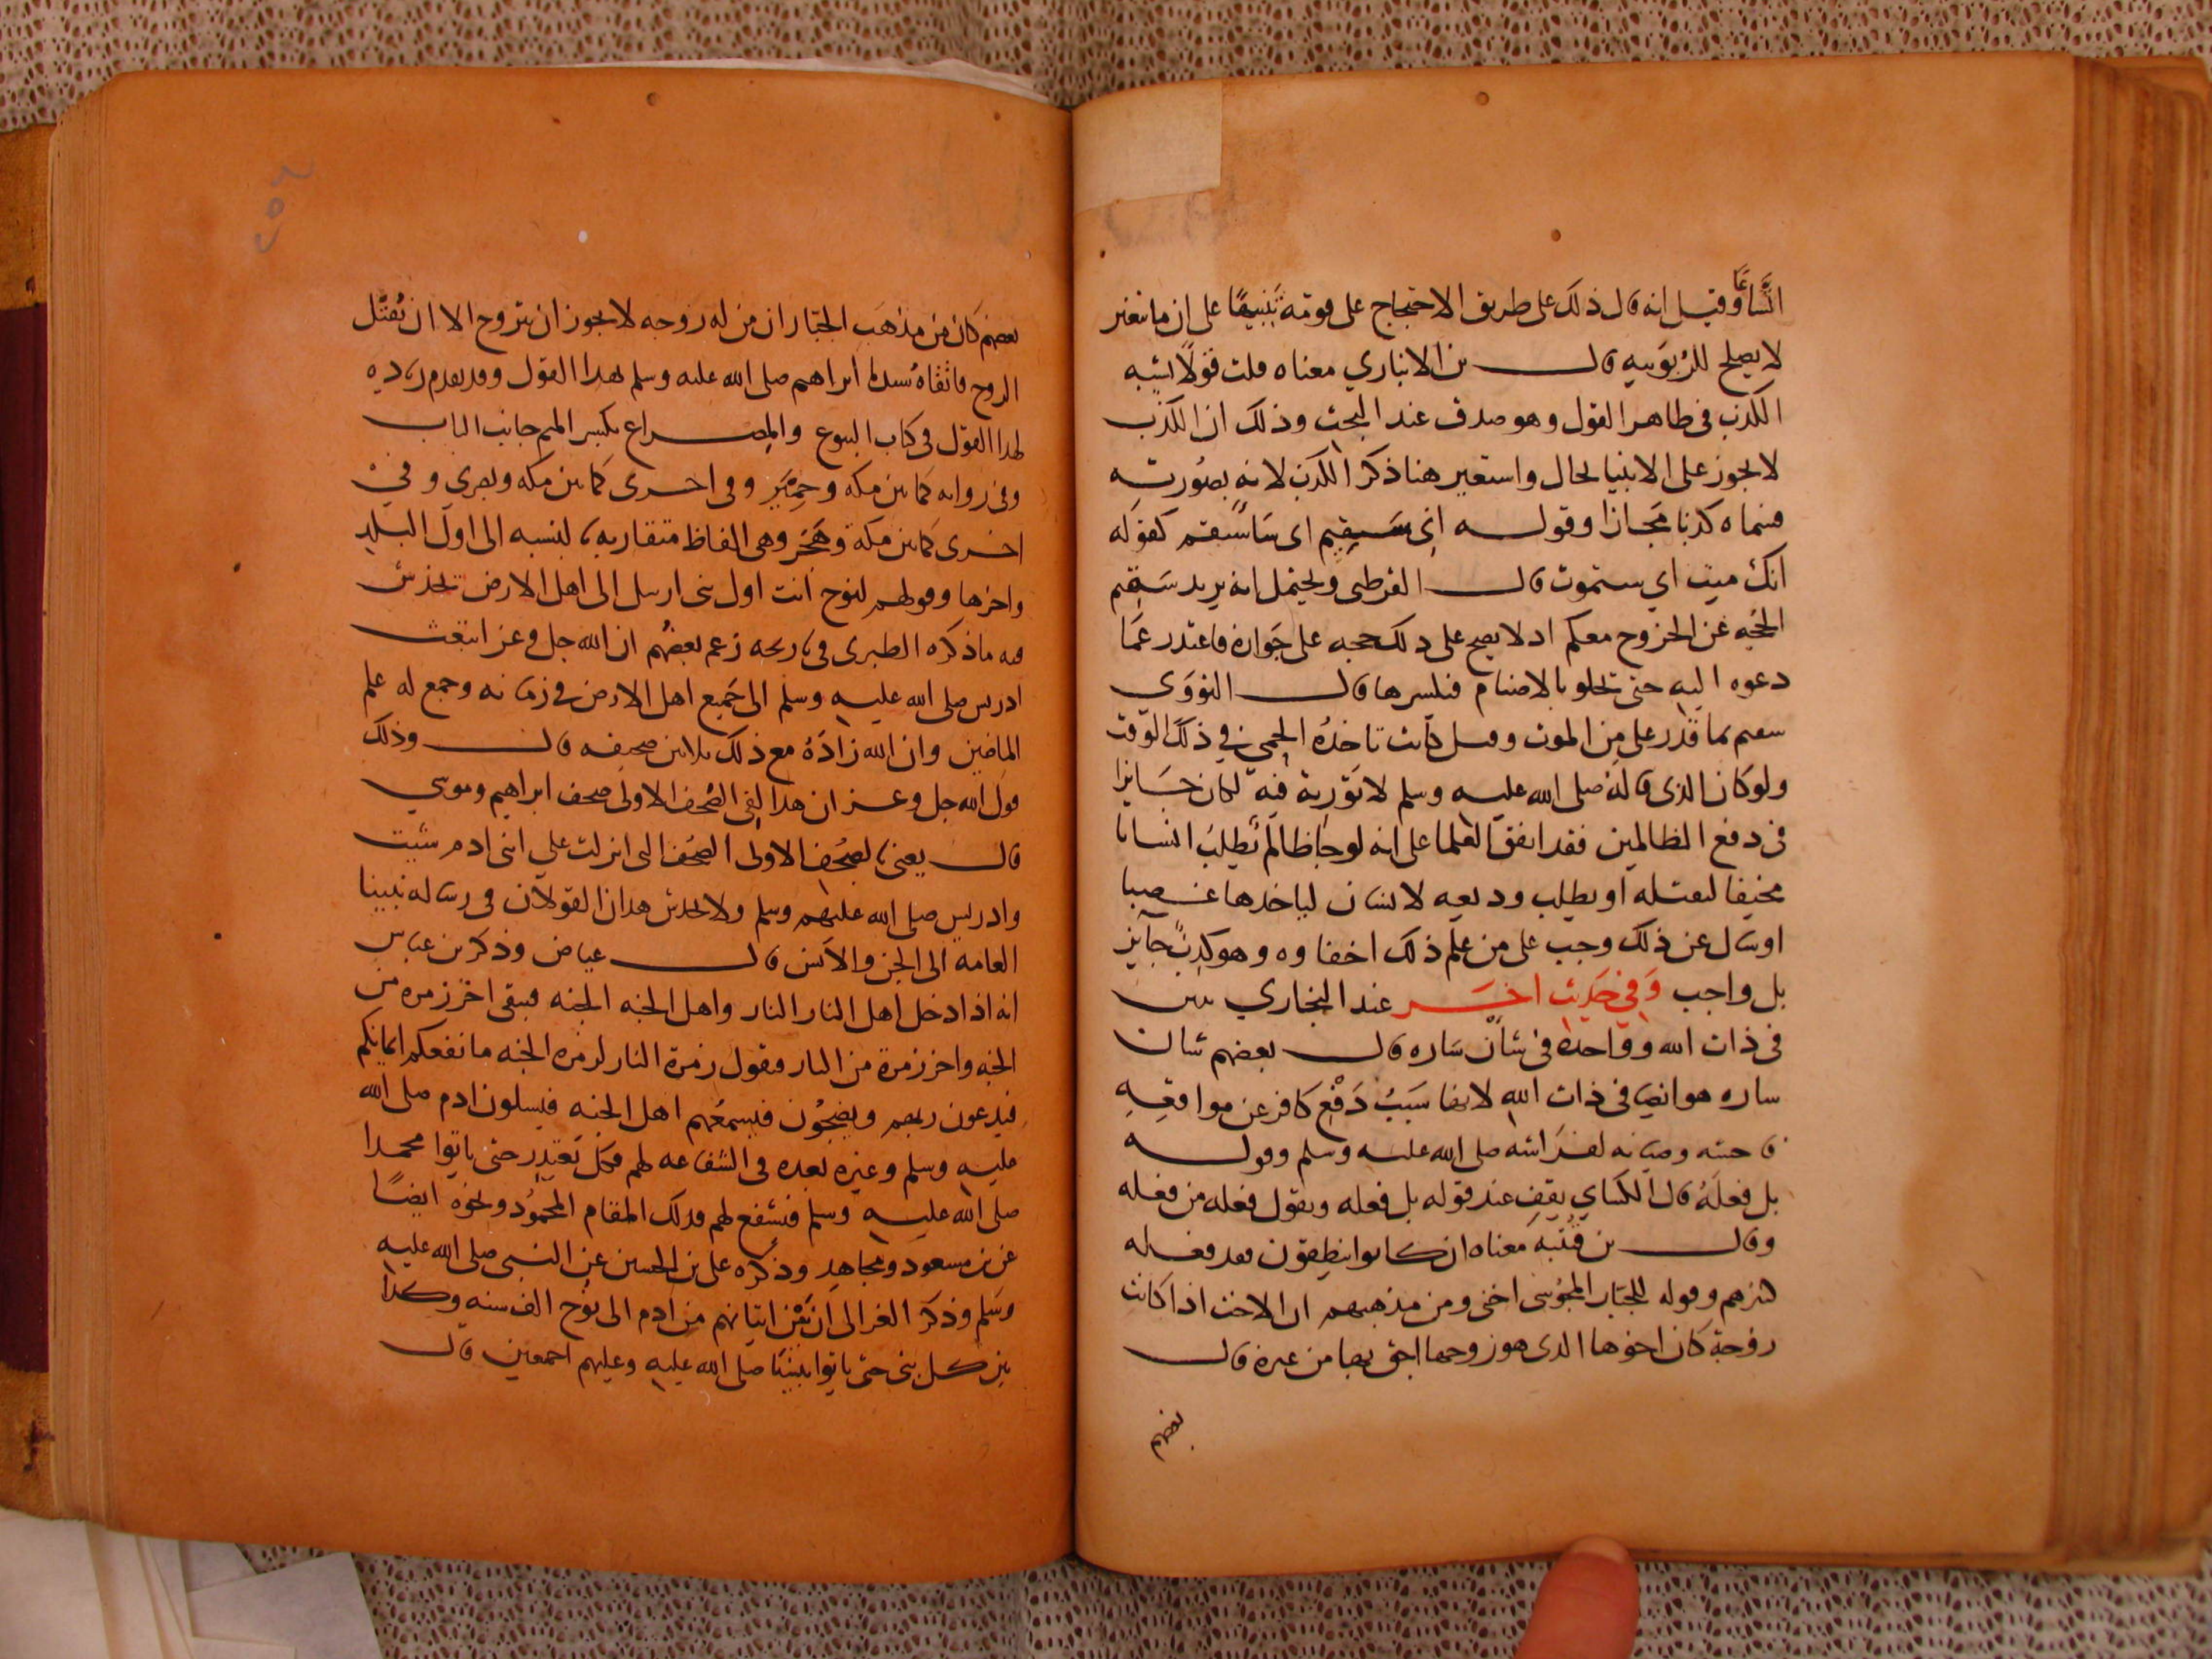 انشا وقيل انه قال ذلك على طريق الاحتجاج على قومه تنبيها على ان ما تغير
لا يصلح للربوبيه قال بن الانباري معناه قلت قولا يشبه
الكذب في ظاهر القول وهو صدق عند البحث وذلك ان الكذب
لا يجوز على الانبيا بحال واستعير هنا ذكر الكذب لانه بصورته
فسماه كذبا مجازا وقوله اني سقيم اي ساسقم كقوله
انك ميت اي ستموت قال القرطبي ويحتمل انه يريد سقيم
الحجه عن الخروج معكم اذ لا يصح على ذلك حجه على جوازه فاعتذر عما
دعوه اليه حتى تخلو بالاصنام فيكسرها قال النووي
سقيم بما قدر علي من الموت وقيل كانت تاخذه الحمى في ذلك الوقت
ولو كان الذي قاله صلى الله عليه وسلم لا تورية فيه لكان جايزا
في دفع الظالمين فقد اتفق العلما على انه لو جا ظالم يطلب انسانا
مختفيا لقتله او يطلب وديعه لانسان لياخذها غصبا
او سال عن ذلك وجب على من علم ذلك اخفاوه وهو كذب جايز
بل واجب وفي حديث اخر عند البخاري ثنتين
في ذات الله وواحدة في شان ساره قال بعضهم شان
ساره هو ايضا في ذات الله لانها سبب دفع كافر عن مواقعه
فاحشه وصيانه لفراشه صلى الله عليه وسلم وقوله
بل فعله قال الكساي يقف عند قوله بل فعله ويقول فعله من فعله
وقال بن قتيبه معناه ان كانوا ينطقون فقد فعله
كبيرهم وقوله للجبار المجوسي اختي ومن مذهبهم ان الاخت اذا كانت
زوجة كان اخوها الذي هو زوجها احق بها من غيره قال
بعضهم
بعضهم كان من مذهب الجبار ان من له زوجه لا يجوز ان تتزوج الا ان يقتل
الزوج فاتقاه سيدنا ابراهيم صلى الله عليه وسلم بهذا القول وقد تقدم زياده
لهذا القول في كتاب البيوع والمصراع بكسر الميم جانب الباب
وفي روايه كما بين مكه وحمير وفي اخرى كما بين مكه وبصرى وفي
اخرى كما بين مكة وهجر وهي الفاظ متقاربه لنسبه الى اول البلد
واخرها وقولهم لنوح انت اول نبي ارسل الى اهل الارض تخدش
فيه ما ذكره الطبري في تاريخه زعم بعضهم ان الله جل وعز ابتعث
ادريس صلى الله عليه وسلم الى جميع اهل الارض في زمانه وجمع له علم
الماضين وان الله زاده مع ذلك ثلاثين صحيفه قال وذلك
قول الله جل وعز ان هذا لفي الصحف الاولى صحف ابراهيم وموسي
قال يعني بالصحف الاولى الصحف التي انزلت علي ابني ادم شيث
وادريس صلى الله عليهم وسلم ولا يخدش هذان القولان في رساله نبينا
العامه الى الجن والانس قال عياض وذكر بن عباس
انه اذا دخل اهل النار النار واهل الجنه الجنه فيبقى اخر زمره من
الجنه واخر زمرة من النار فتقول زمرة النار لزمره الجنه ما نفعكم ايمانكم
فيدعون ربهم ويضجون فيسمعهم اهل الجنه فيسلون ادم صلى الله
عليه وسلم وغيره بعده في الشفاعه لهم فكل يعتذر حتى ياتوا محمدا
صلى الله عليه وسلم فيشفع لهم فذلك المقام المحمود ونحوه ايضا
عن بن مسعود ومجاهد وذكره علي بن الحسين عن النبي صلى الله عليه
وسلم وذكر الغزالي ان بين اتيانهم من ادم الى نوح الف سنه وكذا
بين كل نبي حتى ياتوا نبينا صلى الله عليه وعليهم اجمعين قال